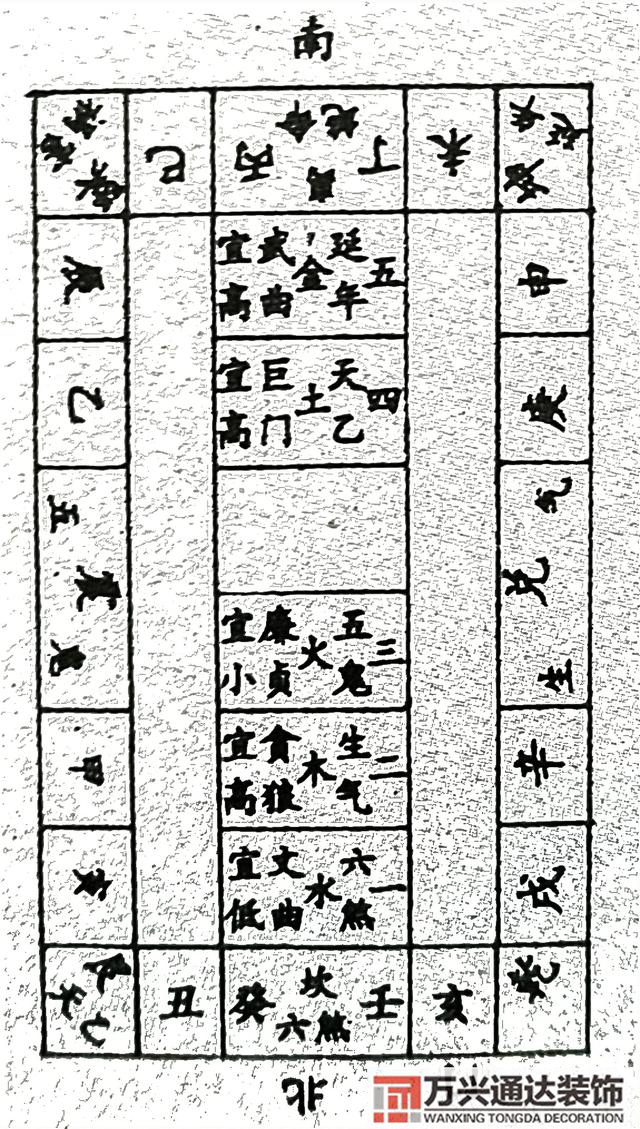 南
祸害
巽
巳
丙
绝命
离
丁
未
延年
坤
辰
宜高
武曲
金
延年
五
申
乙
宜高
巨门
土
天乙
四
庚
五鬼
震
生气
兑
宜小
廉贞
火
五鬼
三
甲
宜高
貪狼
木
生气
二
辛
寅
宜低
文曲
水
六煞
一
戌
艮
天乙
丑
癸
坎
六煞
壬
亥
乾
北
万兴通达装饰
WANXING TONGDA DECORATION